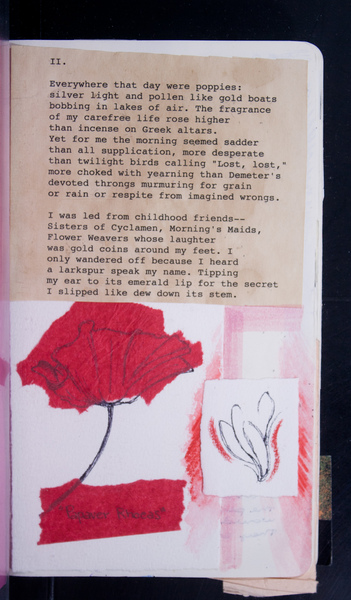 II.
Everywhere that day were poppies:
silver light and pollen like gold boats
bobbing in lakes of air. The fragrance
of my carefree life rose higher
than incense on Greek altars.
Yet for me the morning seemed sadder
than all supplication, more desperate
than twilight birds calling "Lost, lost,"
more choked with yearning than Demeter's
devoted throngs murmuring for grain
or rain or respite from imagined wrongs.
I was led from childhood friends--
Sisters of Cyclamen, Morning's Maids,
Flower Weavers whose laughter
was gold coins around my feet. I
only wandered off because I heard
a larkspur speak my name. Tipping
my ear to its emerald lip for the secret
I slipped like dew down its stem.